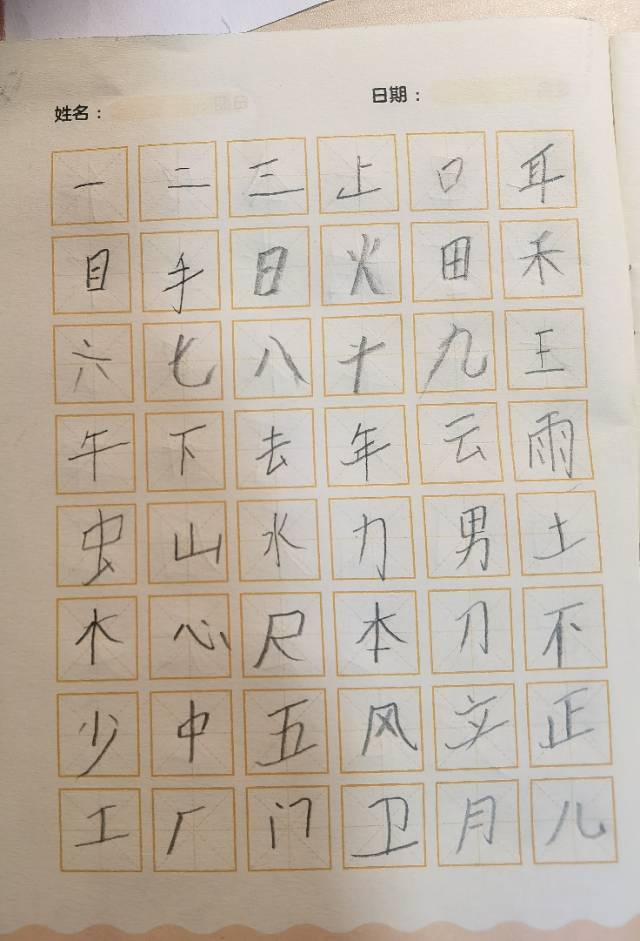 姓名： 日期：
一 二 三 上 口 耳
目 手 日 火 田 禾
六 七 八 十 九 王
午 下 去 年 云 雨
虫 山 水 力 男 土
木 心 尺 本 刀 不
少 中 五 风 文 正
工 厂 门 卫 月 儿